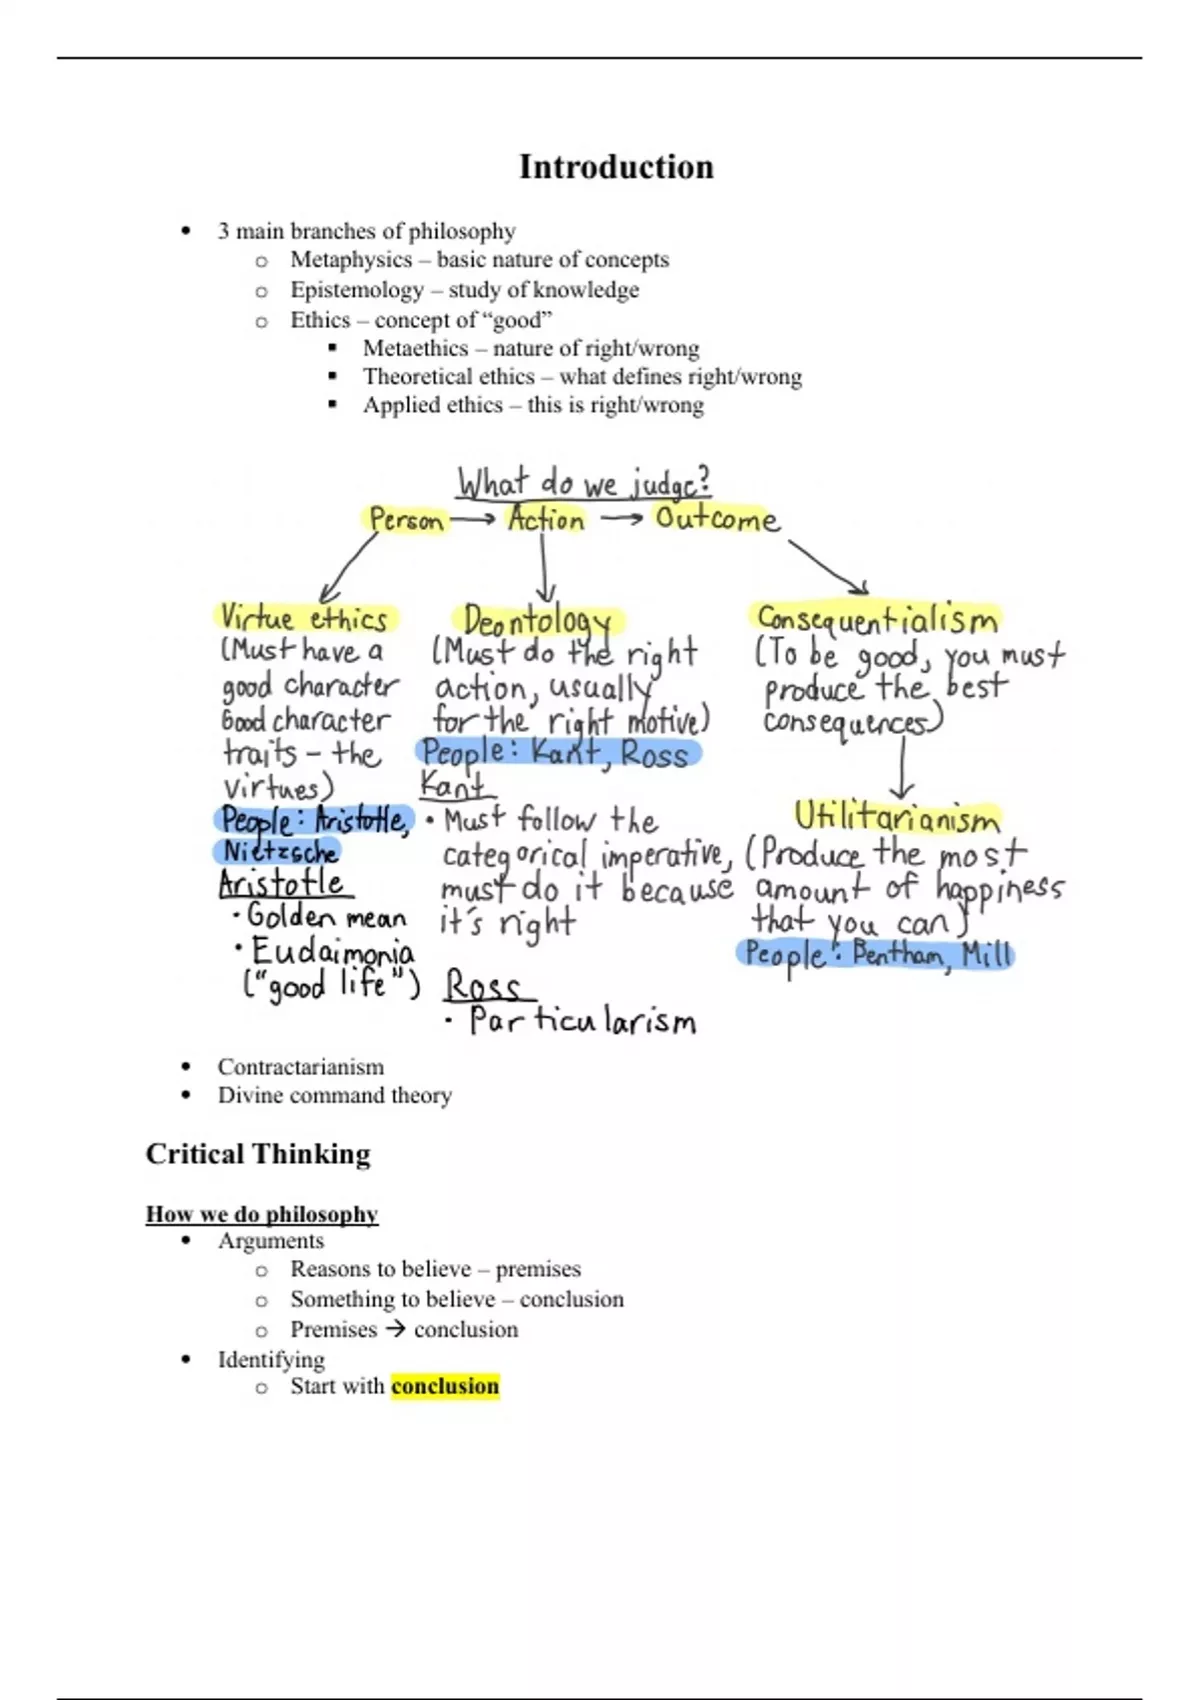 Introduction
• 3 main branches of philosophy
o Metaphysics – basic nature of concepts
o Epistemology – study of knowledge
o Ethics – concept of “good”
▪ Metaethics – nature of right/wrong
▪ Theoretical ethics – what defines right/wrong
▪ Applied ethics – this is right/wrong
What do we judge?
Person → Action → Outcome
Virtue ethics
(Must have a
good character
Good character
traits – the
virtues)
People: Aristotle,
Nietzsche
Aristotle
• Golden mean
• Eudaimonia
("good life")
Deontology
(Must do the right
action, usually
for the right motive)
People: Kant, Ross
Kant
• Must follow the
categorical imperative,
must do it because
it's right
Ross
• Particularism
Consequentialism
(To be good, you must
produce the best
consequences)
Utilitarianism
(Produce the most
amount of happiness
that you can)
People: Bentham, Mill
• Contractarianism
• Divine command theory
Critical Thinking
How we do philosophy
• Arguments
o Reasons to believe – premises
o Something to believe – conclusion
o Premises → conclusion
• Identifying
o Start with conclusion